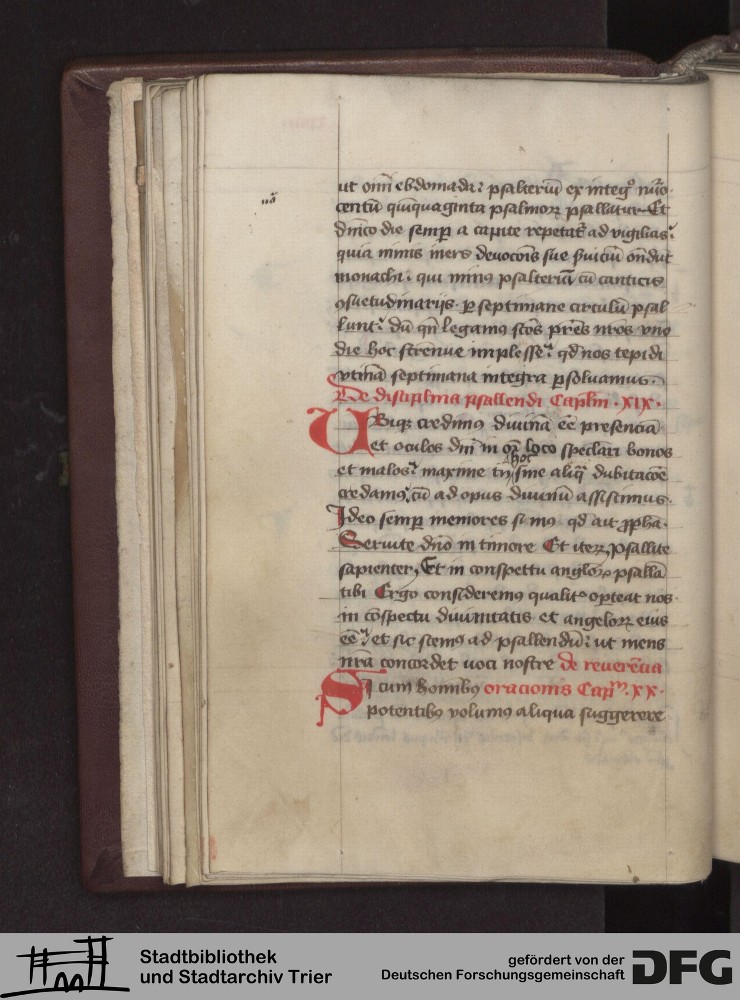 ut om̄i ebdomada: psalteriū ex integͦ nūo
centū quīquaginta psalmoꝝ psallatur Et
dn̄ico die semꝑ a capite repetat̄ ad vigilias:
quia nimis iners deuocōis sue ſuiciū on̄dūt
monachi: qui minꝰ psalteriū cū canticis
ꝯsuetudinarijs ꝑ septimane circulū psal
lunt: dū qn̄ legamꝰ sctōs pr̄es nr̄os vno
die hoc strenue implesse: qd̄ nos tepidi
vtinā septimana integra ꝑsoluamus.
De disciplina psallendi Caplm̄ .XIX.
Vbiqꝫ credimꝰ diuinā eē presenciā
et oculos dn̄i in oī loco speclari bonos
et malos: maxime tn̄ hoc sine aliq̄ dubitacōe
credamꝰ, cū ad opus diuinū assistimus.
Ideo semꝑ memores simꝰ qd̄ ait ꝓpha.
Seruite dn̄o in timore Et iteꝝ, psallite
sapienter, Et in conspectu angloꝝ psallā
tibi Ergo consideremꝰ qualitͦ oꝑteat nos
in cōspectu diuinitatis et angeloꝝ eius
eē: et sic stemꝰ ad psallendū: ut mens
nr̄a concordet uoci nostre de reuerēcia
Si cum hominibꝰ oracionis Capͫ. XX.
potentibꝰ volumꝰ aliqua suggerere
Stadtbibliothek
und Stadtarchiv Trier
gefördert von der
Deutschen Forschungsgemeinschaft
DFG